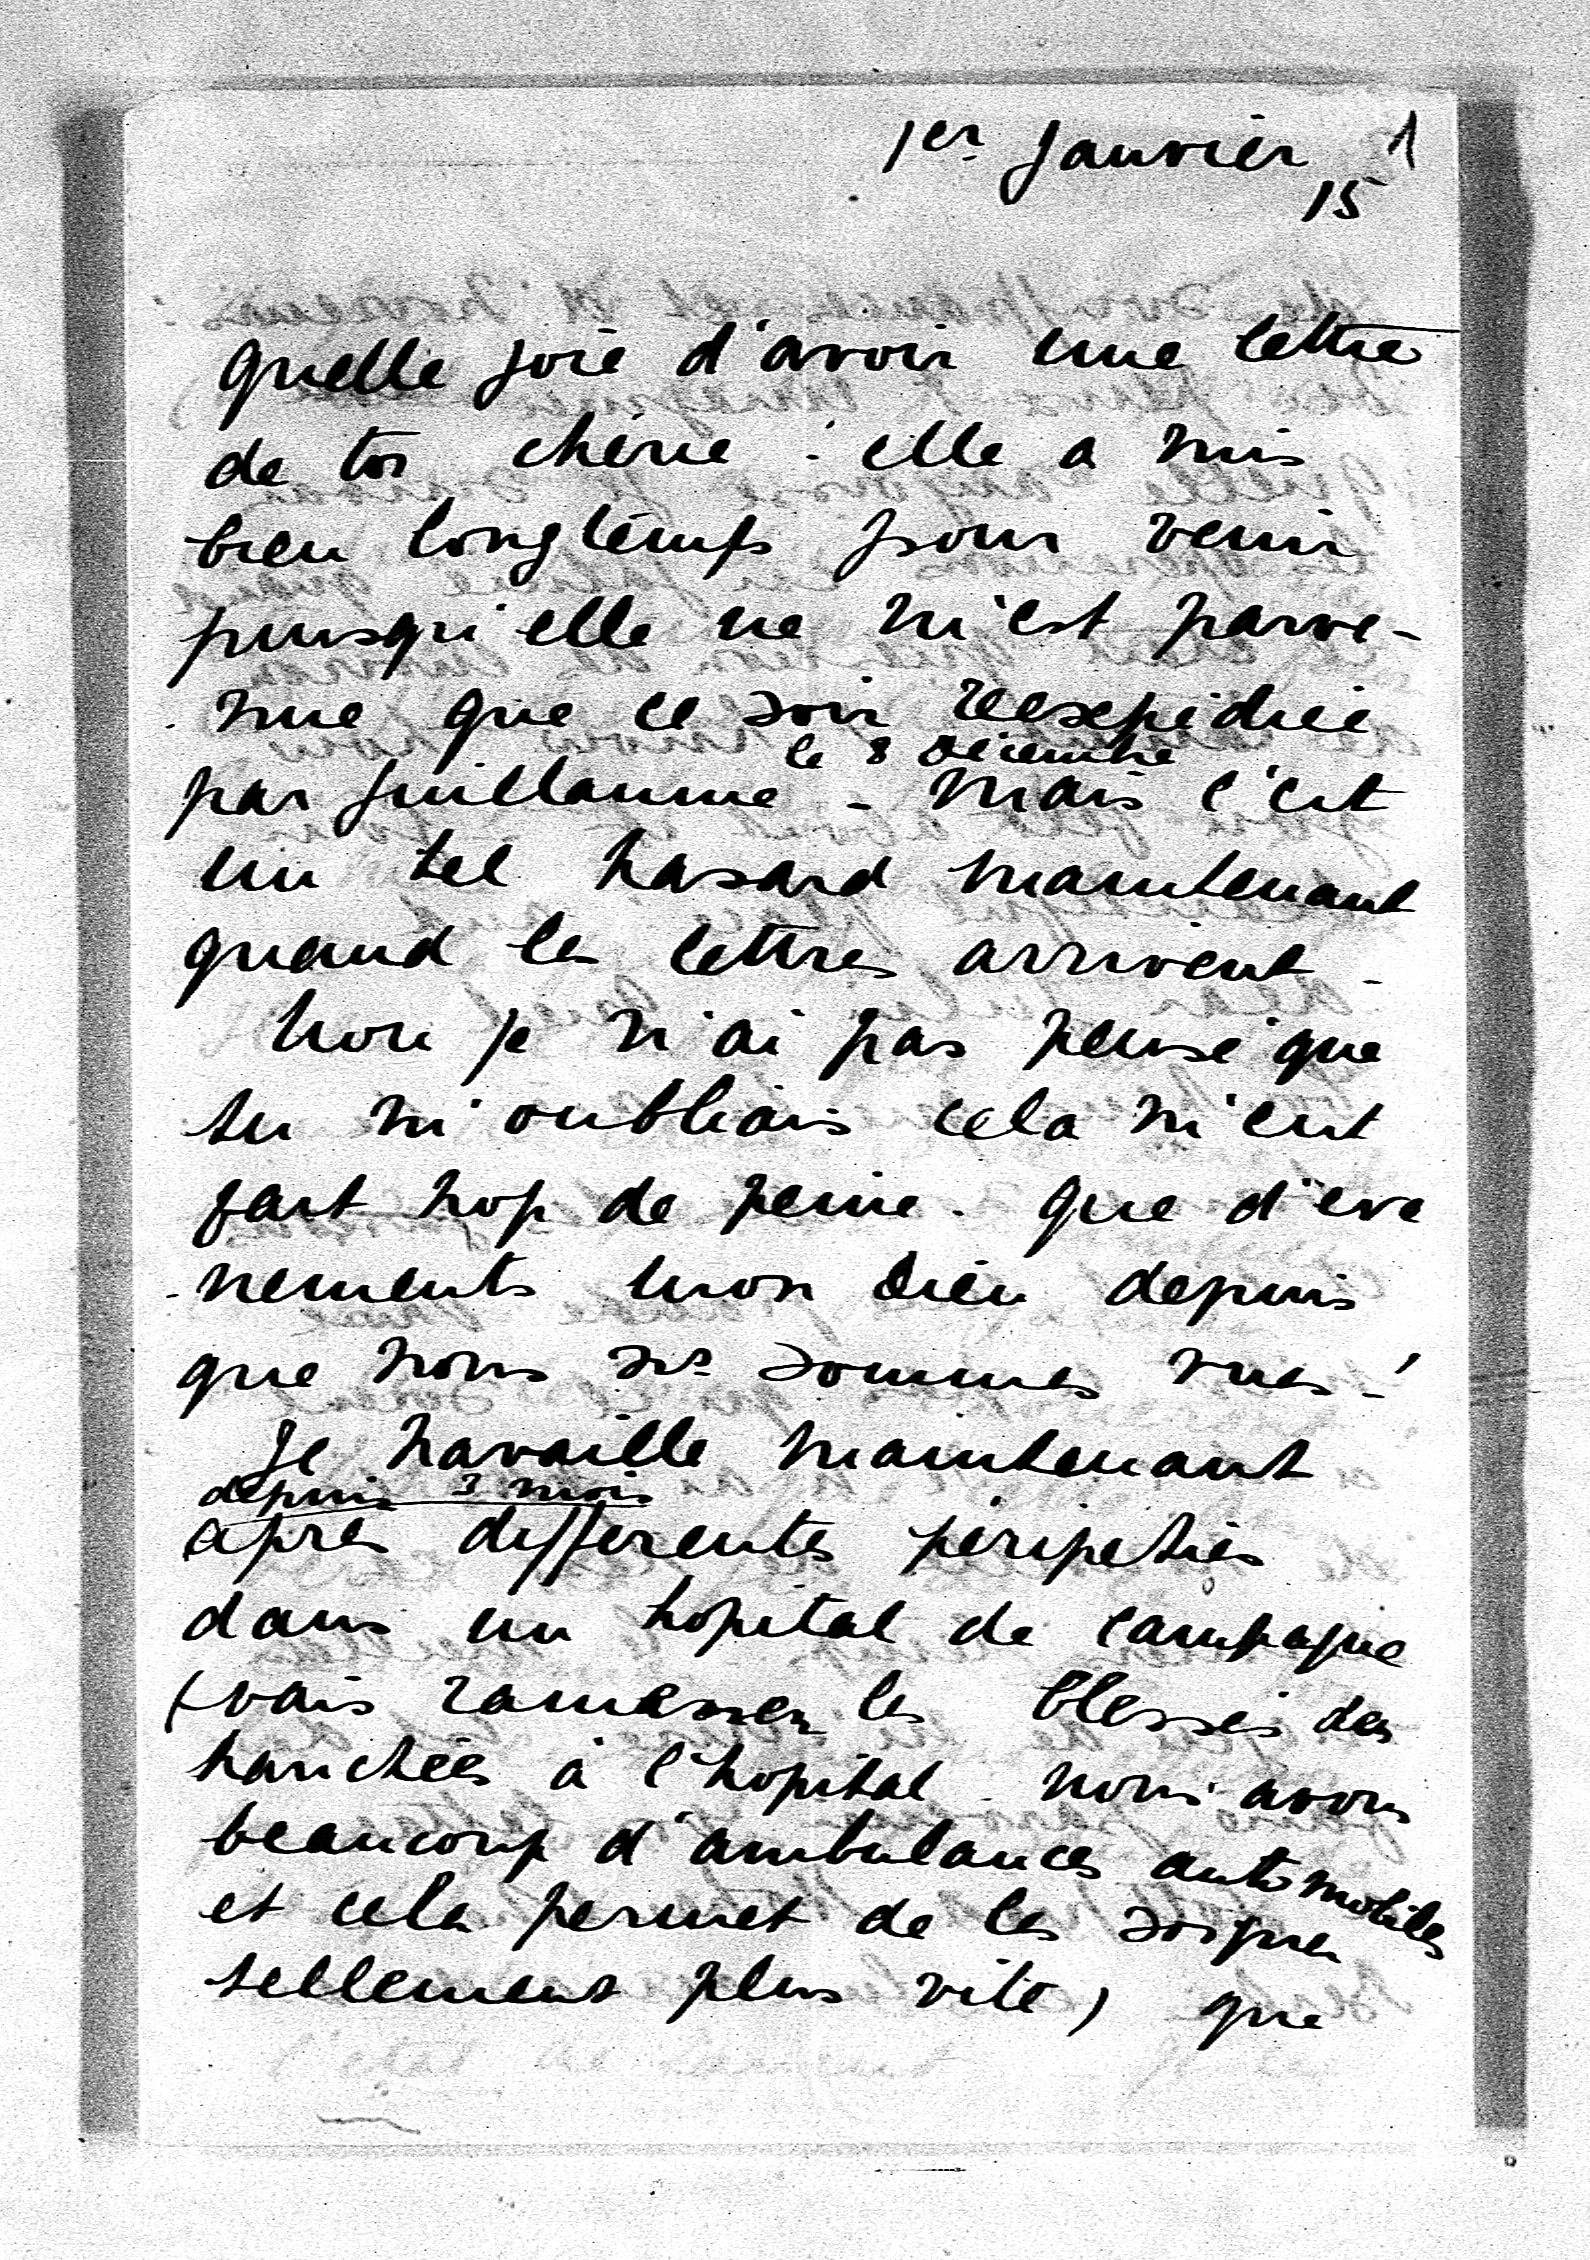 1er Janvier 1
15
quelle joie d'avoir une lettre
de toi chérie : elle a mis
bien longtemps pour venir
puisqu'elle ne m'est parve-
nue que ce soir réexpédiée
le 8 Décembre
par Guillaume - Mais c'est
un tel hasard maintenant
quand les lettres arrivent -
Non je n'ai pas pensé que
tu m'oubliais cela m'eut
fait trop de peine. que d'eve
-nements mon Dieu depuis
que nous ns sommes vues - !
Je travaille maintenant
depuis 3 mois
après differentes péripeties
dans un hopital de campagne
(vais ramasser les blessés des
tranchées à l'hopital. nous avons
beaucoup d'ambulances automobiles
et cela permet de les soigner
tellement plus vite) que